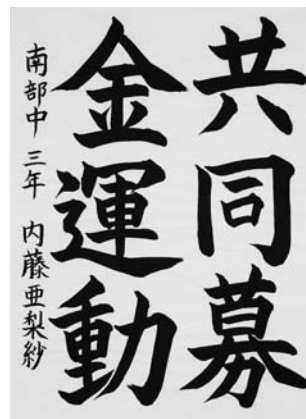 共同募
金運動
南部中 三年 内藤亜梨紗